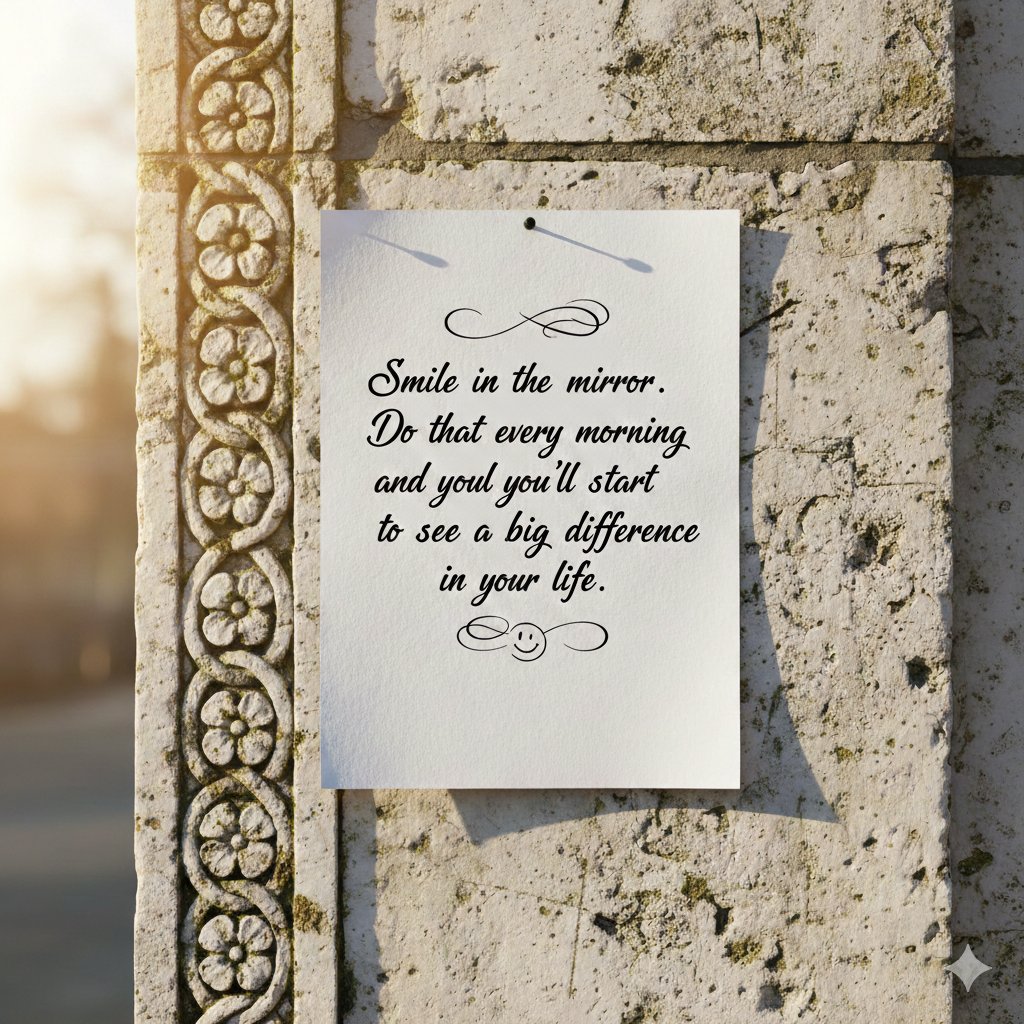 Smile in the mirror.
Do that every morning
and youl you'll start
to see a big difference
in your life.